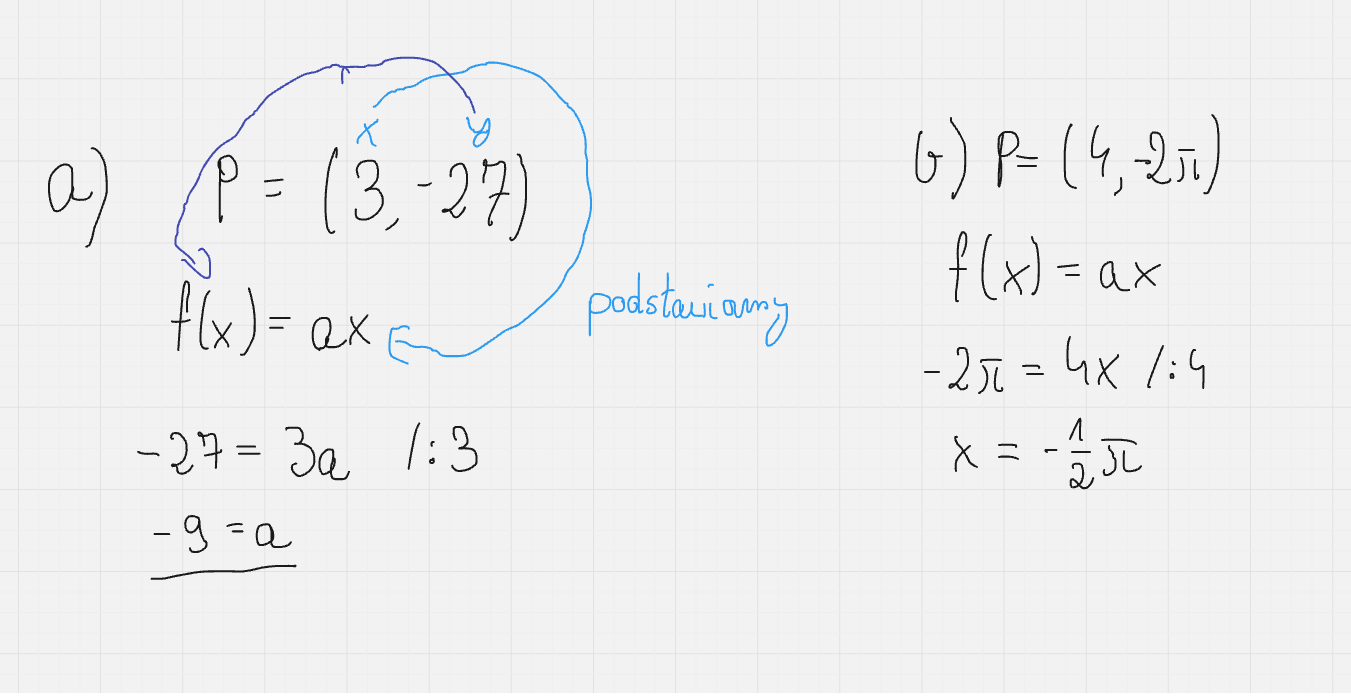 x y
a) P = (3, -27)
f(x) = ax
podstawiamy
-27 = 3a /:3
-9 = a
b) P = (4, -2π)
f(x) = ax
-2π = 4x /:4
x = -1/2 π